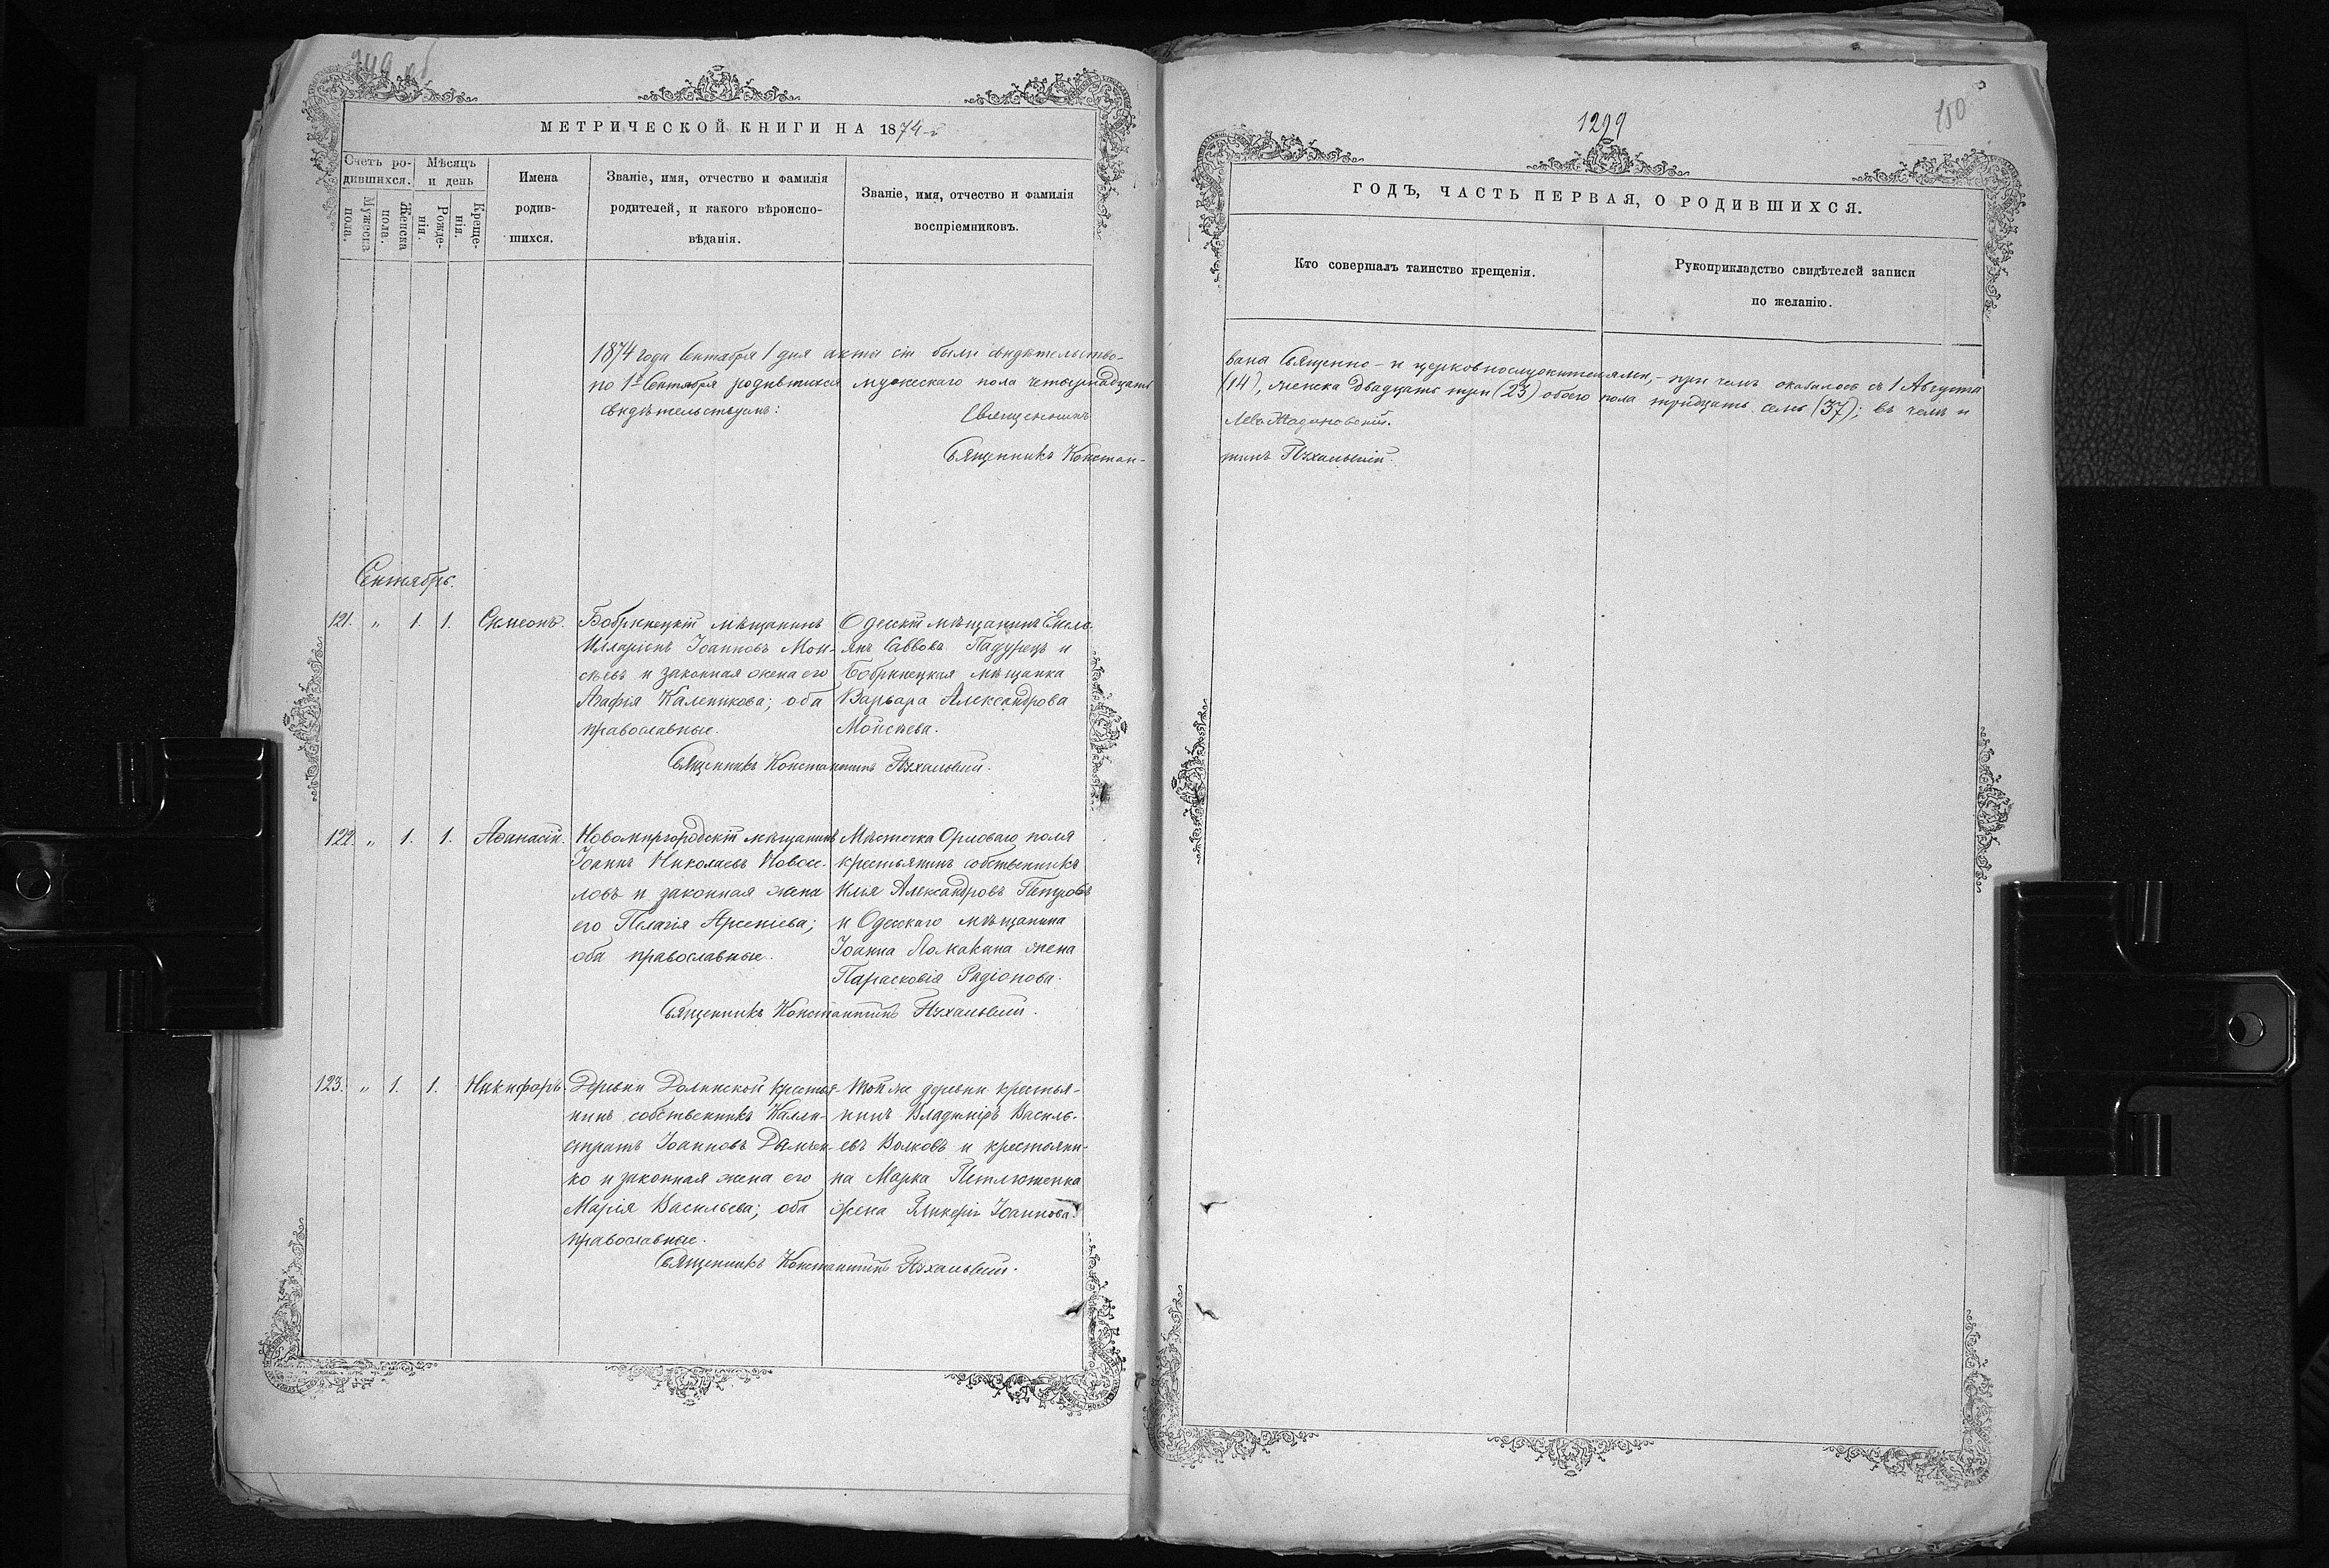 149 об
МЕТРИЧЕСКОЙ КНИГИ НА 1874 г
Счетъ ро-
дившихся.
Мѣсяцъ
и день
Мужеска
пола.
Женска
пола.
Рожде-
нія.
Креще-
нія.
Имена
родив-
шихся.
Званіе, имя, отчество и фамилія
родителей, и какого вѣроиспо-
вѣданія.
Званіе, имя, отчество и фамилія
воспріемниковъ.
1874 года Сентября 1 дня акты сіи были свидѣтельство-
по 1е Сентября родившихся мужескаго пола четырнадцать
свидѣтельствуемъ:
Священникъ
Священникъ Констан-
Сентябрь.
121. " 1. 1. Симеонъ.
Бобринецкій мѣщанинъ
Илларіонъ Іоанновъ Мои-
сѣевъ и законная жена его
Агафія Каленикова; оба
православные.
Одесскій мѣщанинъ Емель-
янъ Саввовъ Падурецъ и
Бобринецкая мѣщанка
Варвара Александрова
Моисѣева.
Священникъ Константинъ
122. " 1. 1. Аѳанасій.
Новомиргородскій мѣщанинъ
Іоаннъ Николаевъ Новосе-
ловъ и законная жена
его Пелагія Арсеніева;
оба православные.
Мѣстечка Орловаго поля
крестьянинъ собственникъ
Илья Александровъ Петровъ
и Одесскаго мѣщанина
Іоанна жена
Парасковія Радіонова.
Священникъ Константинъ
123. " 1. 1. Никифоръ.
Деревни Долинской крестья-
нинъ собственникъ Калли-
стратъ Іоанновъ Демчен-
ко и законная жена его
Марія Васильева; оба
православные.
Той же деревни крестья-
нинъ Владиміръ Василь-
евъ Волковъ и крестьяни-
на Марка Петлюшенка
жена Гликерія Іоаннова.
Священникъ Константинъ
1299
150
ГОДЪ, ЧАСТЬ ПЕРВАЯ, О РОДИВШИХСЯ.
Кто совершалъ таинство крещенія.
Рукоприкладство свидѣтелей записи
по желанію.
ваны Священно- и церковнослужителями,- при чемъ оказалось съ 1 Августа
(14), женска двадцать три (23) обоего пола тридцать семь (37); въ чемъ и
Левъ
тинъ